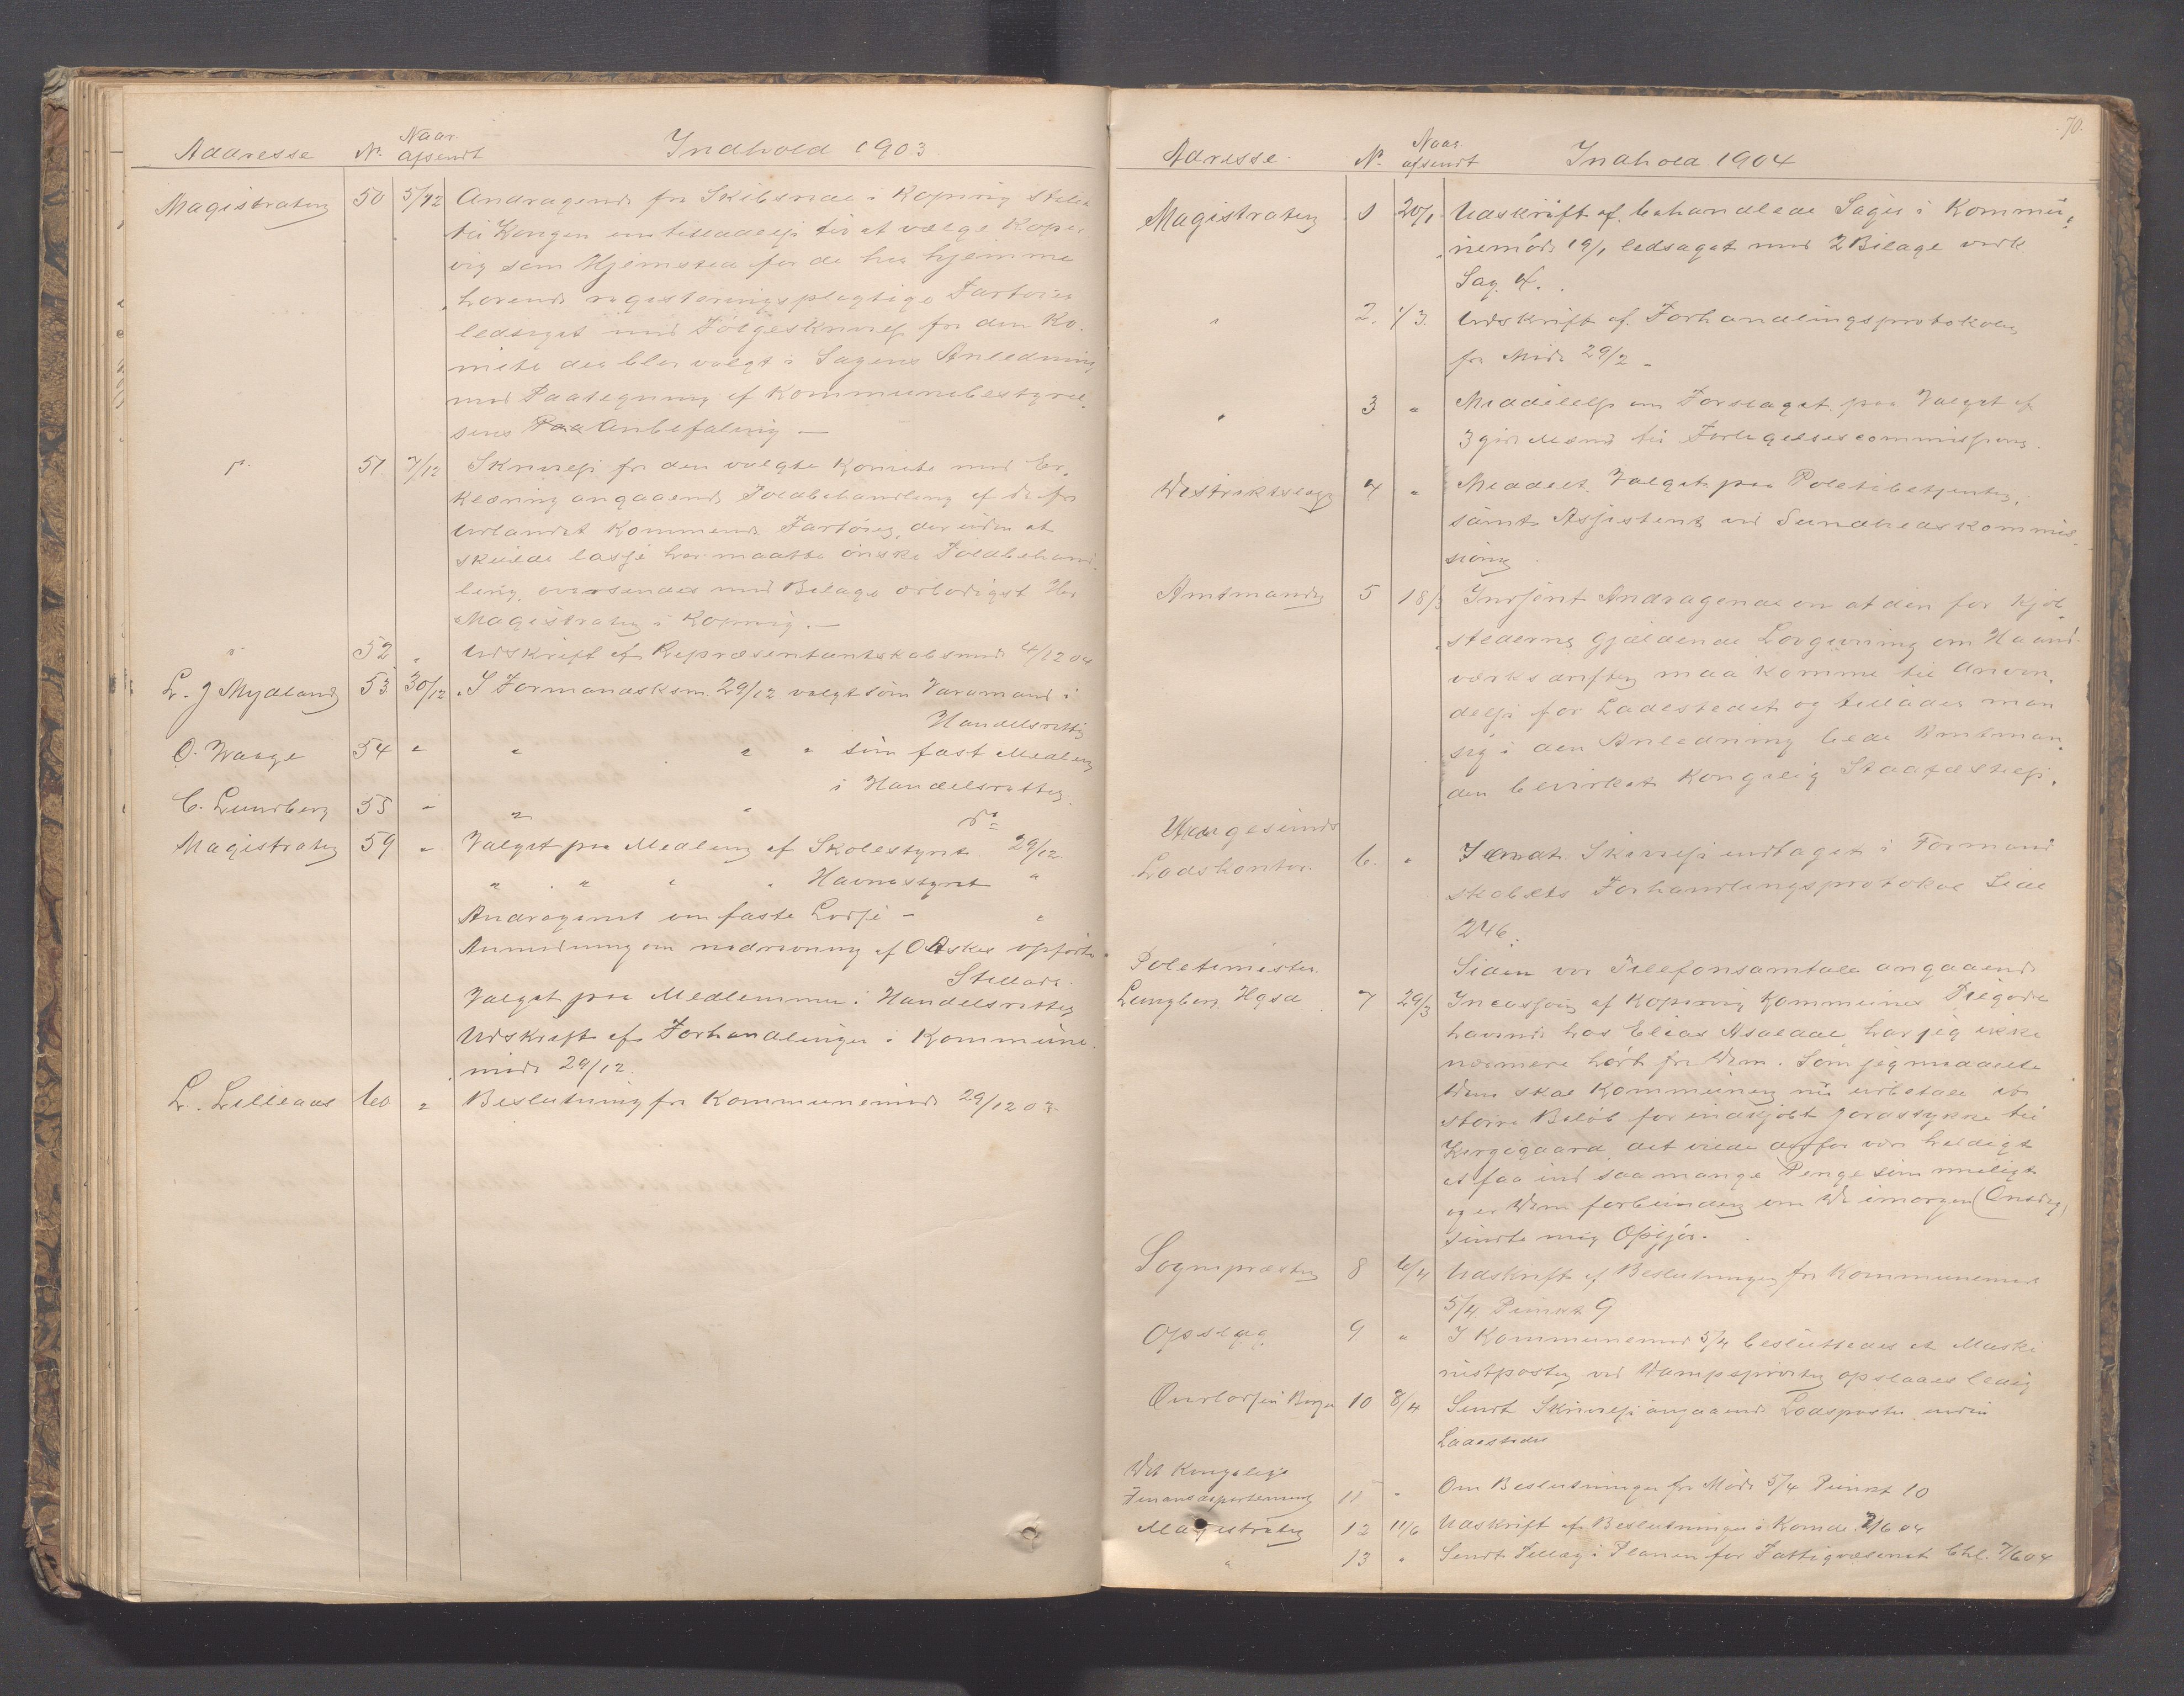 Addresse No. Naar afsendt Indhold 1903
Magistraten 50 5/12 Andragende fra Skibsrede i Kopervig stilet
til Kongen om tilladelse til at vælge Koper
vig som Hjemsted for de her hjemme
hørende registeringspligtige Fartøier
ledsaget med Følgeskrivelse fra den Ko-
mite der blev valgt i Sagens Anledning
med Paategning af Kommunebestyrel-
sens Anbefaling —
" 51. 7/12 Skrivelse fra den valgte Komite med Er-
klæring angaaende Toldbehandling af de fra
Udlandet kommende Fartøier, der uden at
skulde losse her maatte ønske Toldbehand-
ling, oversendes med Bilage ærbødigst Hr
Magistraten i Kopervig. —
" 52 " Udskrift af Repræsentantskabsmøde 4/12 04
L. J Mydland 53 30/12 I Formandskm. 29/12 valgt som Varamand i
Handelsretten
O. Waage 54 " " " " som fast Medlem
i Handelsretten
C. Lundberg 55 " " " do
Magistraten 59 " Valget paa Medlem af Skolestyret 29/12
" " " " Havnestyret "
Andragende om faste Lodse - "
Anmodning om nedrivning af O Askes opførte
Stillads.
Valget paa Medlemmer i Handelsretten
Udskrift af Forhandlinger i Kommune
møde 29/12.
L. Lilleaas 60 " Beslutning fra Kommunemøde 29/12 03
70.
Adresse No. Naar afsendt Indhold 1904
Magistraten 1 20/1 Udskrift af behandlede Sager i Kommu-
nemøde 19/1 ledsaget med 2 Bilage vedk.
Sag 4.
" 2. 1/3. Udskrift af Forhandlingsprotokolen
fra Møde 29/2 -
" 3 " Meddelelse om Forslaget paa Valget af
3 gode Mænd til Forligelsescommissionen.
Distriktslægen 4 " Meddelt Valget paa Politibetjenten,
samt Assistent ved Sundhedskommis-
sionen
Amtmanden 5 18/3 Indsendt Andragende om at den for Kjøb
stederne gjældende Lovgivning om Haand-
værksdriften maa komme til Anven-
delse for Ladestedet og tillader man
sig i den Anledning bede Amtman-
den bevirket Kongelig Stadfæstelse.
Haugesunds
Lodskontor. 6. " Sendt Skrivelse indtaget i Formand
skabets Forhandlingsprotokol Side
246.
Politimester
Lungberg Hgsd 7 29/3 Siden vor Telefonsamtale angaaende
Incassoen af Kopervig Kommunes Tilgode
havende hos Elias Asaldal har jeg ikke
nærmere hørt fra Dem. Som jeg meddelte
Dem skal Kommunen nu udbetale et
større Beløb for indkjøbt Jordstykke til
Kirgegaard det vilde derfor være heldigt
at faa ind saa mange Penge som muligt
og er Dem forbunden om De imorgen (Onsdag)
sendte mig Opgjør.
Sognepræsten 8 6/4 Udskrift af Beslutningen fra Kommunemøde
5/4 Punkt 9
Opslag 9 " I Kommunemøde 5/4 besluttedes at Maski
nistposten ved Dampsprøiten opslaaes ledig
Overlodsen Bergen 10 8/4 Sendt Skrivelse angaaende Lodsposter inden
Ladestedet
Det Kongelige
Finansdepartement 11 " Om Beslutninger fra Møde 5/4 Punkt 10
Magistraten 12 11/6 Udskrift af Beslutninger i Komde. 7/6 04
" 13 " Sendt Tillæg i Planen for Fattigvæsenet Bhl. 7/6 04